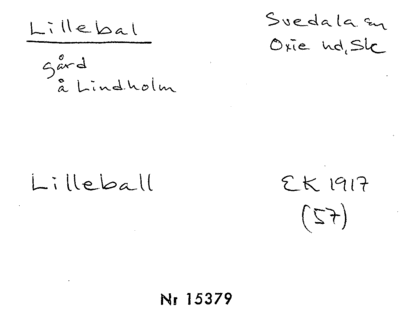 Lillebal
Svedala sn
Oxie hd, Sk
gård
å Lindholm
Lilleball
EK 1917
(57)
Nr 15379